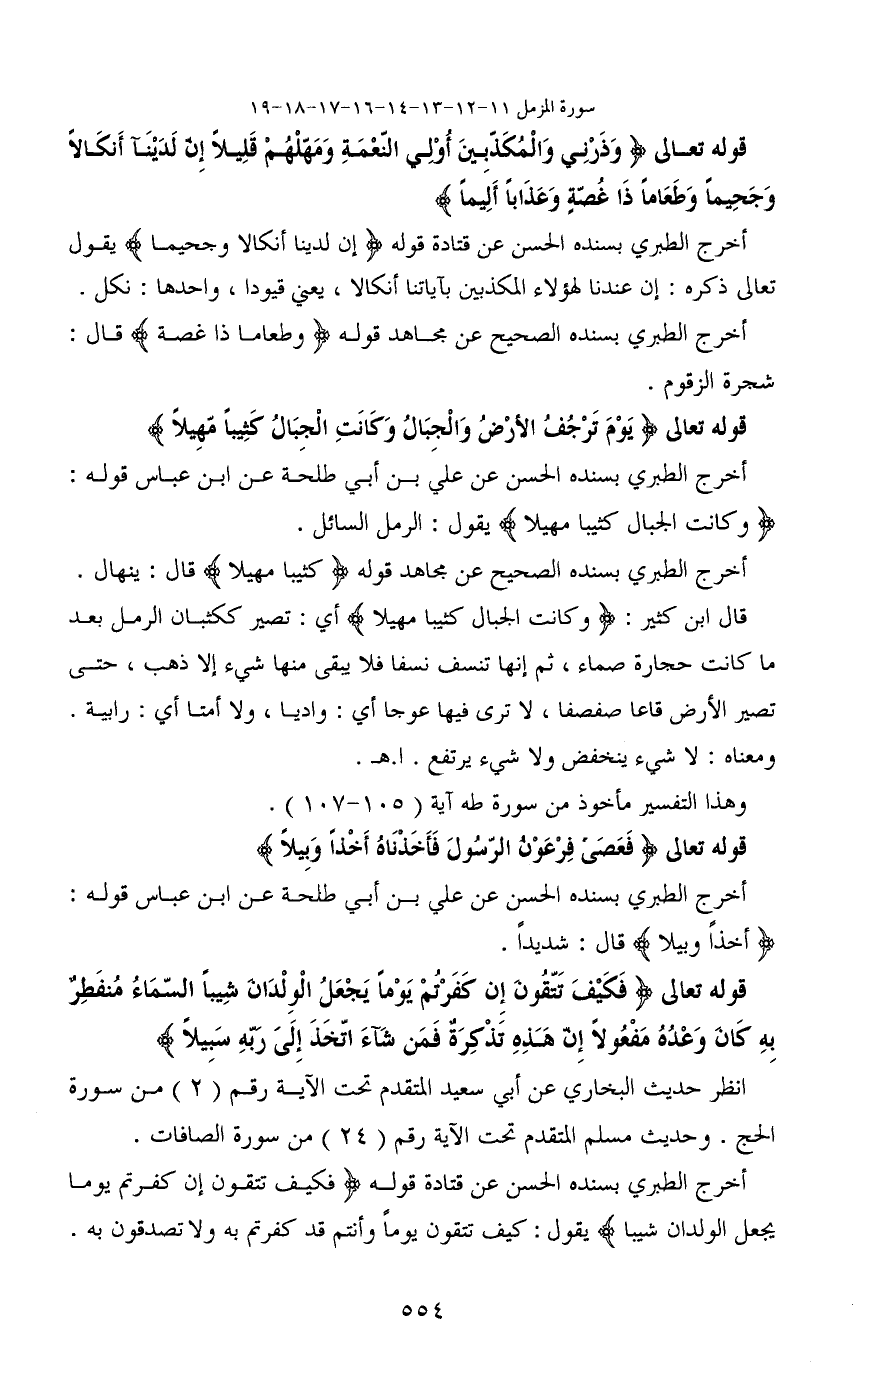 سورة المزمل ١١-١٢-١٣-١٤-١٦-١٧-١٨-١٩
قوله تعالى ﴿ وَذَرْنِي وَالْمُكَذِّبِينَ أُوْلِي النَّعْمَةِ وَمَهِّلْهُمْ قَلِيلاً إِنّ لَدَيْنَآ أَنكَالاً
وَجَحِيماً وَطَعَاماً ذَا غُصّةٍ وَعَذَاباً أَلِيماً ﴾
أخرج الطبري بسنده الحسن عن قتادة قوله ﴿ إن لدينا أنكالا وجحيما ﴾ يقول
تعالى ذكره : إن عندنا لهؤلاء المكذبين بآياتنا أنكالا ، يعني قيودا ، واحدها : نكل .
أخرج الطبري بسنده الصحيح عن مجاهد قوله ﴿ وطعاما ذا غصة ﴾ قال :
شجرة الزقوم .
قوله تعالى ﴿ يَوْمَ تَرْجُفُ الأرْضُ وَالْجِبَالُ وَكَانَتِ الْجِبَالُ كَثِيباً مّهِيلاً ﴾
أخرج الطبري بسنده الحسن عن علي بن أبي طلحة عن ابن عباس قوله :
﴿ وكانت الجبال كثيبا مهيلا ﴾ يقول : الرمل السائل .
أخرج الطبري بسنده الصحيح عن مجاهد قوله ﴿ كثيبا مهيلا ﴾ قال : ينهال .
قال ابن كثير : ﴿ وكانت الجبال كثيبا مهيلا ﴾ أي : تصير ككثبان الرمل بعد
ما كانت حجارة صماء ، ثم إنها تنسف نسفا فلا يبقى منها شيء إلا ذهب ، حتى
تصير الأرض قاعا صفصفا ، لا ترى فيها عوجا أي : واديا ، ولا أمتا أي : رابية .
ومعناه : لا شيء ينخفض ولا شيء يرتفع . ا.هـ .
وهذا التفسير مأخوذ من سورة طه آية ( ١٠٥-١٠٧ ) .
قوله تعالى ﴿ فَعَصَىَ فِرْعَوْنُ الرّسُولَ فَأَخَذْنَاهُ أَخْذاً وَبِيلاً ﴾
أخرج الطبري بسنده الحسن عن علي بن أبي طلحة عن ابن عباس قوله :
﴿ أخذاً وبيلا ﴾ قال : شديداً .
قوله تعالى ﴿ فَكَيْفَ تَتّقُونَ إِن كَفَرْتُمْ يَوْماً يَجْعَلُ الْوِلْدَانَ شِيباً السّمَاءُ مُنفَطِرٌ
بِهِ كَانَ وَعْدُهُ مَفْعُولاً إِنّ هَـَذِهِ تَذْكِرَةٌ فَمَن شَآءَ اتّخَذَ إِلَىَ رَبّهِ سَبِيلاً ﴾
انظر حديث البخاري عن أبي سعيد المتقدم تحت الآية رقم ( ٢ ) من سورة
الحج . وحديث مسلم المتقدم تحت الآية رقم ( ٢٤ ) من سورة الصافات .
أخرج الطبري بسنده الحسن عن قتادة قوله ﴿ فكيف تتقون إن كفرتم يوما
يجعل الولدان شيبا ﴾ يقول : كيف تتقون يوماً وأنتم قد كفرتم به ولا تصدقون به .
٥٥٤